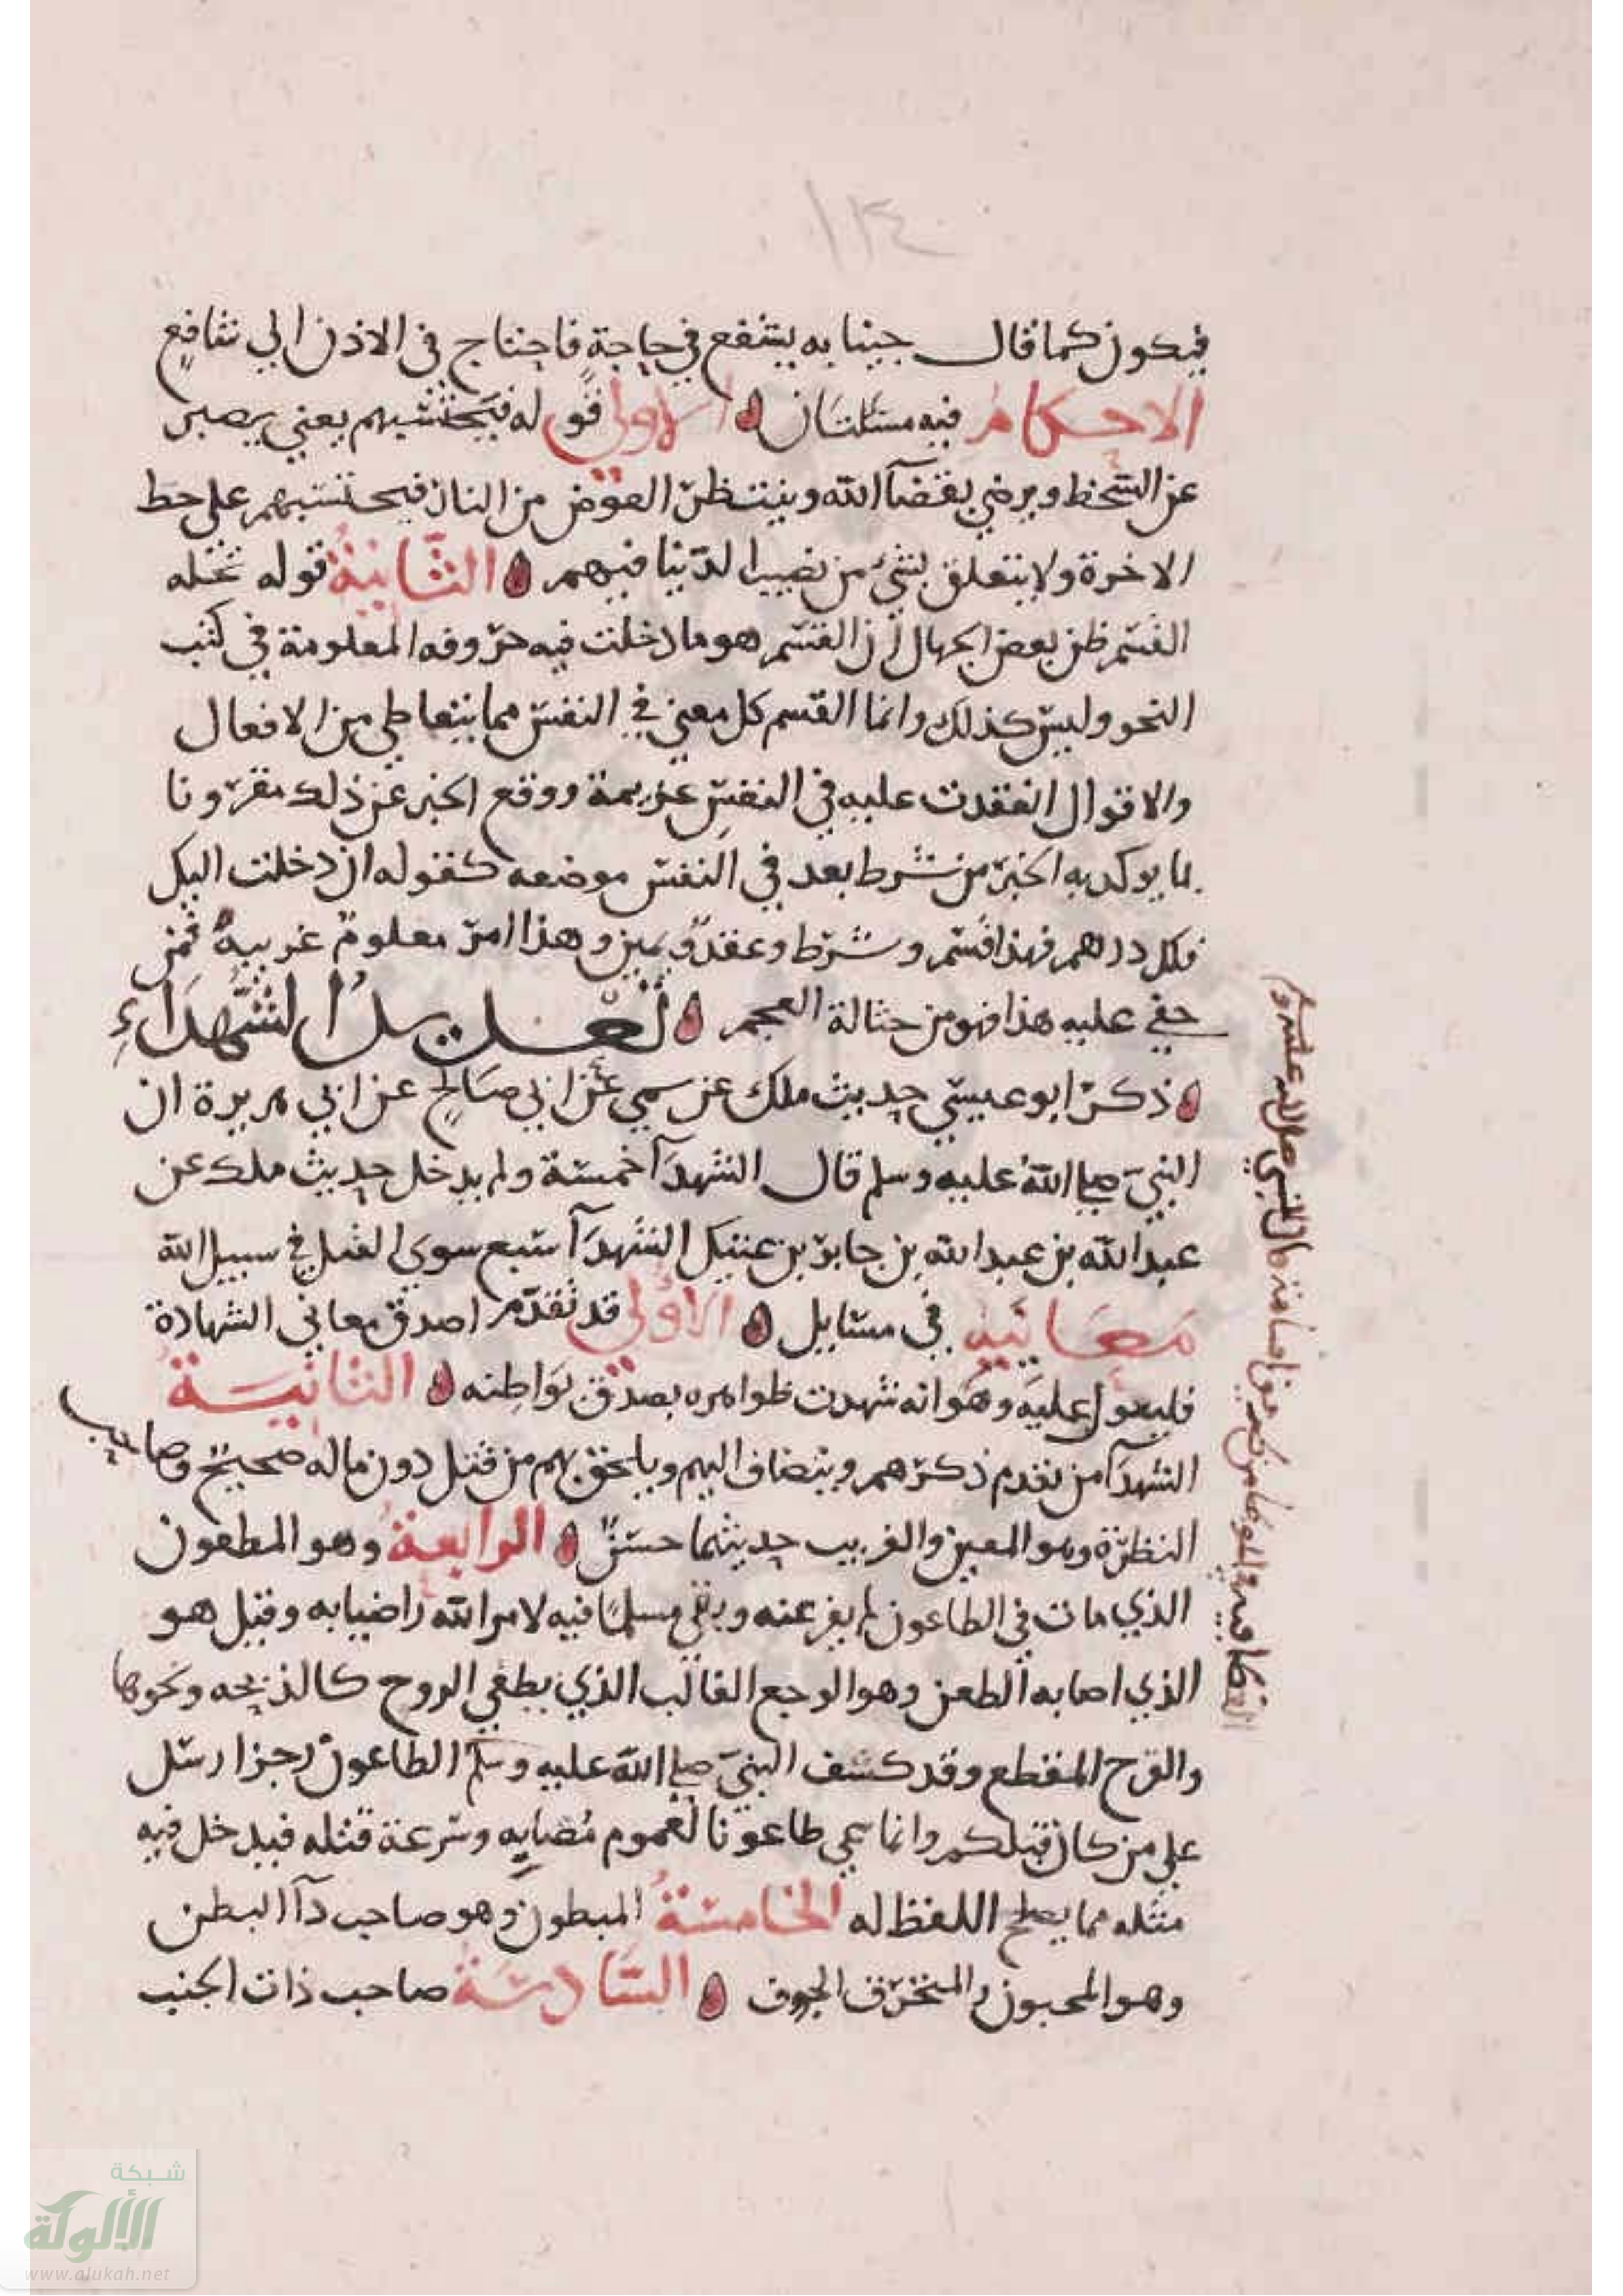 ١٣٤
فيكون كما قال جينا به يشفع في حاجة فاحتاج في الاذن الي شافع
الاحكام فيه مسئلتان الاولي قوله فيحتسبهم يعني يصبر
عن السخط ويرضي بقضآ الله وينتظر العوض من الناد فيحتسبهم علي حط
الاخرة ولا يتعلق بشيء من نصيب الدنيا فيهم الثانية قوله تحله
القسم ظن بعض الجهال ان القسم هو ما دخلت فيه حروفه المعلومة في كتب
النحو وليس كذلك وانما القسم كل معني في النفس مما يتعاطي من الافعال
والاقوال انعقدت عليه في النفس عزيمة ووقع الخبر عن ذلك مقرونا
بما يوكد به الخبر من شرط بعد في النفس موضعه كقوله ان دخلت اليكل
فلكل درهم فهذا قسم وشرط وعقد ويمين وهذا امر معلوم عربية فمن
خفي عليه هذا فهو من حثالة العجم تعديل الشهداء
ذكر ابو عيسي حديث ملك عن سمي عن ابي صالح عن ابي هريرة ان
النبي صلي الله عليه وسلم قال الشهدآ خمسة ولم يدخل حديث ملك عن
عبد الله بن عبد الله بن جابر بن عتيك الشهدآ سبع سوي القتل في سبيل الله
معانيه في مسايل الاولي قد تقدم اصدق معاني الشهادة
فليعول عليه وهو انه شهدت ظواهره بصدق بواطنه الثانية
الشهدآ من تقدم ذكرهم وينضاف اليهم ويلحق بهم من قتل دون ماله صحيح وصاحب
النظرة وهو المعين والغريب حديثهما حسن الرابعة وهو المطعون
الذي مات في الطاعون لم يفر عنه وبقي مسلما فيه لامر الله راضيا به وقيل هو
الذي اصابه الطعن وهو الوجع الغالب الذي يطفي الروح كالذبحه ونحوها
والقرح المقطع وقد كشف النبي صلي الله عليه وسلم الطاعون رجز ارسل
علي من كان قبلكم وانما سمي طاعونا لعموم مصابه وسرعة قتله فيدخل فيه
مثله مما يصلح اللفظ له الخامسة المبطون وهو صاحب دآ البطن
وهو المحبون والمنخرق الجوف السادسة صاحب ذات الجنب
قال النبي صلي الله عليه وسلم
شبكة
الألوكة
www.alukah.net